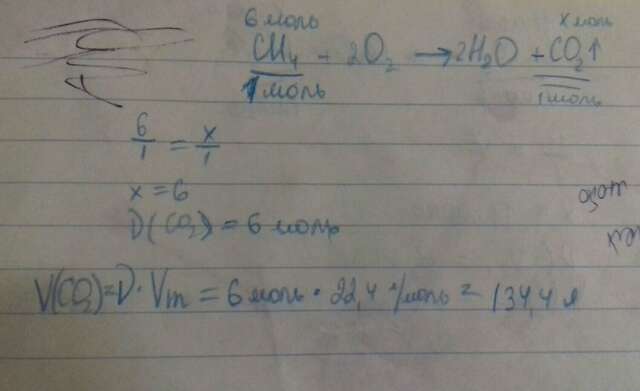 6 моль x моль
CH₄ + 2O₂ → 2H₂O + CO₂↑
1 моль 1 моль
6/1 = x/1
x = 6
D(CO₂) = 6 моль
V(CO₂) = D · Vm = 6 моль · 22,4 л/моль = 134,4 л